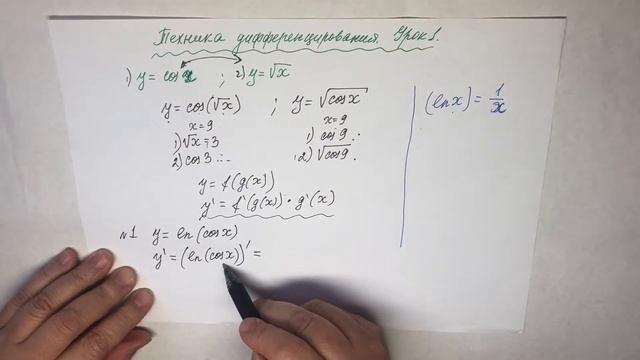 Техника дифференцирования. Урок 1.
1) y = cos x ; 2) y = √x
y = cos(√x) ; y = √cos x
x = 9 x = 9
1) √x = 3 1) cos 9 ...
2) cos 3 ... 2) √cos 9 .
y = f(g(x))
y' = f'(g(x)) · g'(x)
№1 y = ln(cos x)
y' = (ln(cos x))' =
(ln x) = 1/x